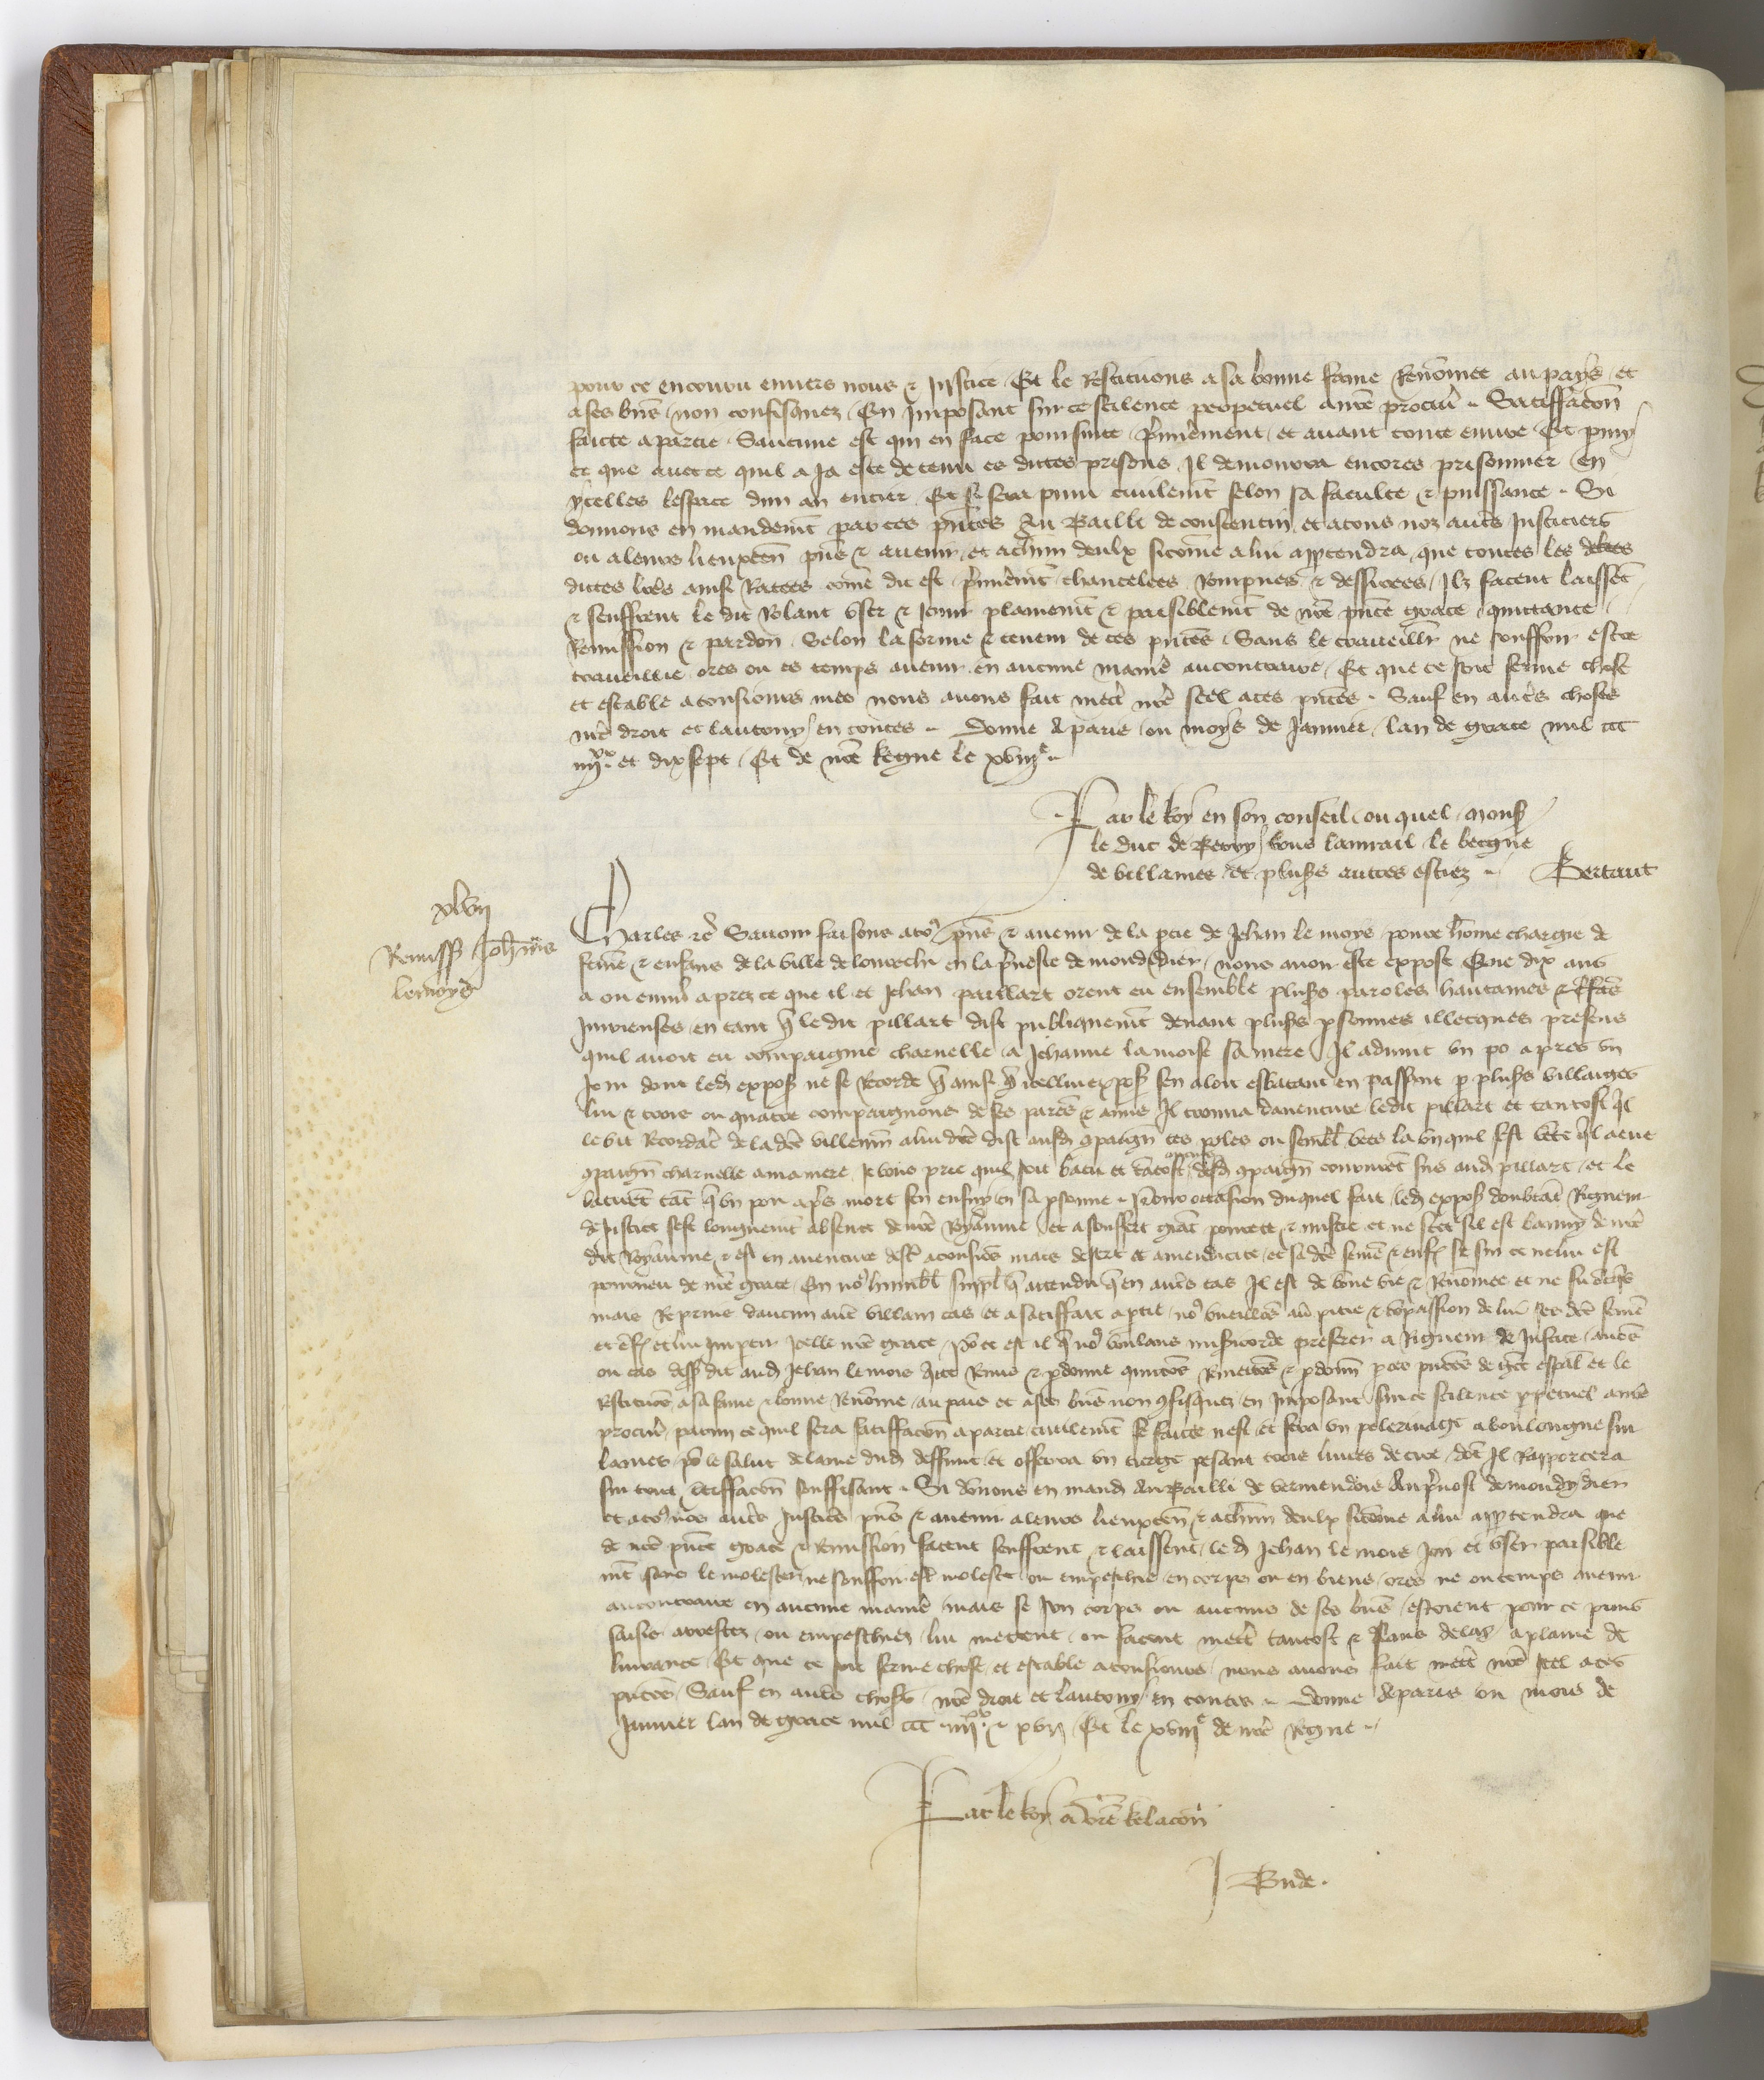 pour ce encouru envers nous & justice Et le restituons a sa bonne fame renōmee au pays et
a ses biēs non confisquez En imposant sur ce scilence perpetuel a nr̄e procur̄ Satiffacōn
faicte a partie Saucune est qui en face poursuite p̄mierement et avant toute euvre Et parmy
ce que avec ce quil a ja este detenu es dictes prisons Il demourra encores prisonnier en
ycelles lespace dun an entier Et si sera puni civilemt̄ selon sa faculte & puissance Si
donnons en mandemt̄ par ces pn̄tes Au Bailli de constentin et a tous noz autr̄s Justiciers
ou a leurs lieuxten̄ pn̄s & avenir et a chūn deulx sicōme a lui app̄tendra que toutes les
dictes lr̄es ainsi comē dit est p̄mieremt̄ chancelees rompues & dessirees Ilz facent laissēt
& seuffrent le dit Rolant user & joir plainemt̄ & paisiblemt̄ de nr̄e pn̄te grace quittance
Remission & pardon Selon la forme & teneur de ces pn̄tes Sans le traveillr̄ ne souffrir estre
traveillie ores ou es temps avenir en aucune manie᷑ au contraire Et que ce soit ferme chose
et estable a tousiours mes nous avons fait mectr̄ nr̄e seel a ces pn̄tes Sauf en autr̄s choses
nr̄e droit et lautruy en toutes Donne A paris ou moys de Janvier lan de grace mil ccc
iiijxx et dix sept Et de nr̄e Regne le xviije
Par le Roy en son conseil ou quel mons̄
le duc de Berry vous lamirail le becgue
de villaines et plus̄s autres estiez Bertaut
xlvij
Remiss̄ Joh̄nis
lemoys
Charles &c̄ Savoir faisons a to9 pn̄s & avenir de la p̄tie de Jehan le moys povre hōme chargie de
femē & enfans de la ville de en la p̄voste de mondidier nous avoir este expose Que dix ans
a ou environ apres ce que il et Jehan paillart orent eu ensemble plus̄s paroles haultaines
Injurieuses en tant q̄ le dit pillart dist publiquemt̄ devant plus̄s p̄sonnes illecques presens
quil avoit eu compaignie charnelle a Jehanne lamoise sa mere Il advint un po apres un
Jour dont led̄ expos̄ ne se recorde q̄ ainsi q̄ icellui expos̄ sen aloit esbatant en passant p̄ plus̄s villaiges
lui & trois ou quatre compaignons de ses parēs & amis Il trouva daventure ledit pillart et tantost q̄l
le vit recordāt de la dc̄e villenie a lui dc̄e dist ausd̄ 9paign̄ ces p̄oles ou sembl̄ vees la un quil sest vēte q̄l a eue
9paign̄ charnelle a ma mere Je vous prie quil soit batu et tātost aucuns desd̄ 9paign̄ coururēt sus aud̄ pillart et le
batirēt tāt q̄ un pou ap̄s mort sen ensuy en sa p̄sonne Pour occasion duquel fait led̄ expos̄ doubtāt Rigueur
de Justice sest longuemt̄ absente de nr̄e Royaume et a souffert grāt povrete & misere et ne scet sil est banny de nr̄e
dit Royaume & est en aventure destr̄ a tousiōs mais desert et a mendicite et sa dc̄e femē & enf̄s se sur ce ne lui est
pourveu de nr̄e grace En no9 humbl̄t suppl̄ q̄ attendu q̄ en autr̄s cas Il est de bōne vie & Renōmee et ne fu
mais Reprins daucun autr̄e villain cas et a satiffait a p̄tie no9 vueillōs av̄ pitie & cōpassion de lui
et lui impartir Icelle nr̄e grace Pource est il q̄ no9 voulans misericorde preferer a Rigueur de Justice
ou cas dess9dit aud̄ Jehan le mois avōs Remis & p̄donne quittōs Remettōs & p̄donn̄ p̄ ces pn̄tes de gr̄ce esp̄al̄ et le
Restituōs a sa fame & bonne Renōme au pais et a ses biēs non 9fisquez en Imposant sur ce scilence p̄petuel a nr̄e
procur̄ parmi ce quil fera satiffacōn a partie civilemt̄ se faicte nest et fera un pelerinage a boulongne sur
la mer po᷑ le salut de lame dud̄ deffunt et offerra un cierge pesant trois livres de cire dōt Il Rapportera
sur tout certifficacōn souffisant Si dōnons en mand̄ Au Bailli de vermendois Au p̄vost de mondidier
et a to9 nos autr̄s Justic̄ pn̄s & avenir a leurs lieuxten̄ & a chūn deulx sicōme a lui app̄tendra que
de nr̄e pn̄te grace & Remission facent seuffrent & laissent led̄ Jehan le mois Joir et user paisible
mt̄ sans le molester ne souffrir estr̄ moleste ou empeschie en corps ou en biens ores ne ou temps avenir
au contraire en aucune manie᷑ mais se son corps ou aucuns de ses biēs estoient pour ce prins
saisis arrestez ou empeschiez lui mettent ou facent mectr̄ tantost & sans delay a plaine de
livrance Et que ce soit ferme chose et estable a tousiours nous avons fait mectr̄ nr̄e seel a ces
pn̄tes Sauf en autr̄s choses nr̄e droit et lautruy en toutes Donne a paris ou mois de
Janvier lan de grace mil ccc iiijxx & xvij Et le xviije de nr̄e Regne
Par le Roy a vr̄e Relacōn
J Bude.